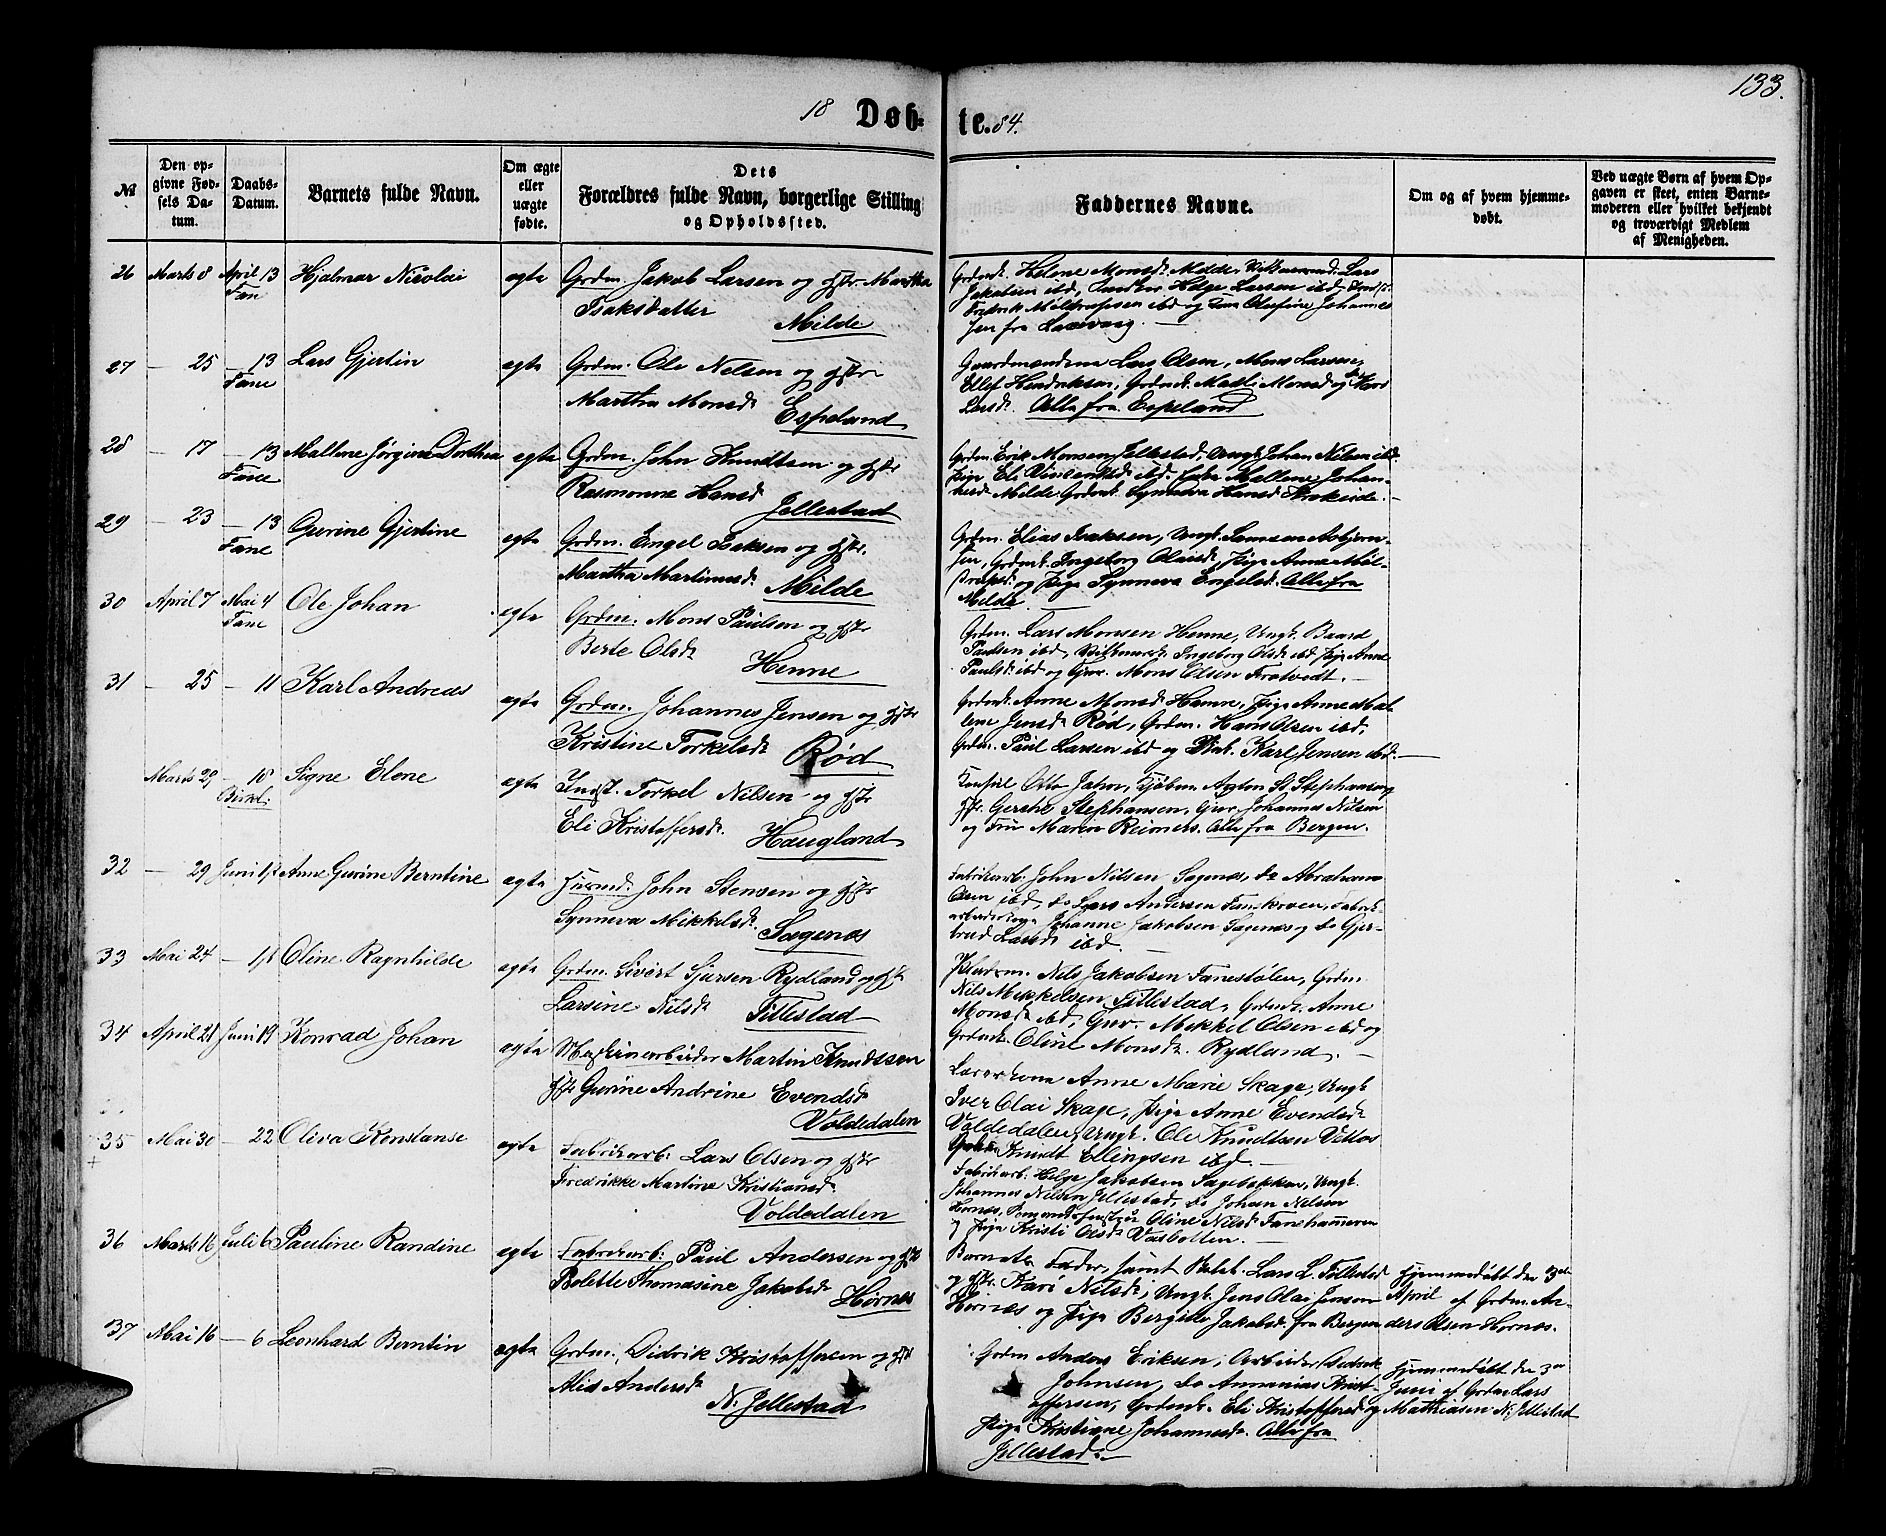 133.
18 Døb-te. 84.
№
Den opgivne Fødsels Datum.
Daabs-Datum.
Barnets fulde Navn.
Om ægte eller uægte fødte.
Dets Forældres fulde Navn, borgerlige Stilling og Opholdssted.
Faddernes Navne.
Om og af hvem hjemmedøbt.
Ved uægte Børn af hvem Opgaven er skeet, enten Barnemoderen eller hvilket bekjendt og troværdigt Medlem af Menigheden.
26 Marts 8 April 13 Hjalmar Nicolai egte Grdm. Jakob Larsen og Hstr Martha
Fane Isaksdatter
Milde
Grdmd. Helene Monsd. Milde, Lars
Jakobsen ibd, Helge Larsen ibd,
Fredrik Miltropsen ibd og Olefine Johannes
sen fra
27 — 25 — 13 Lars Gjertin egte Grdm. Ole Nelsen og Hstr
Fane Martha Monsd.
Espeland
Gaardmændene Lars Olsen, Mons Larsen,
Ellef Hendriksen, Grdmd. Malli Monsd og
Larsd. Alle fra Espeland
28 — 17 — 13 Mallene Jørgine Dorthea egte Grdm. John Knudtsen og Hstr
Fane Hansd.
Jellestad
Grdm. Erik Monsen Jellestad, Ungk. Johan Nilsen ibd.
Pige Eli ibd. Mallene Johan-
nesd. Milde. Grdmd. Synneva Hansd.
29 — 23 — 13 Gurine Gjertine egte Grdm. Engel Isaksen og Hstr.
Fane Martha Martinusd.
Milde
Grdm. Elias Isaksen, Ungk. Asbjørn-
sen, Grdmd. Ingeborg Olaisd. Pige Anne Mil-
tropsd. og Pige Synneva Engelsd. Alle fra
Milde.
30 April 7 Mai 4 Ole Johan egte Grdm. Mons Paulsen og Hstr
Fane Berte Olsd.
Henne
Grdm. Lars Monsen Henne, Ungk. Baard
Paulsen ibd, Ingeborg Olsd. ibd, Pige Anne
Paulsd. ibd og Gjver. Mons Olsen Frotvedt.
31 — 25 — 11 Karl Andreas egte Grdm. Johannes Jensen og Hstr
Kristine Torkelsd.
Rød
Grdmd. Anne Monsd. Hamre, Pige Anne Mal-
lene Jensd. Rød, Grdm. Hans Olsen ibd,
Grdm. Paul Larsen ibd og Karl Jensen ibd.
Marts 29 — 18 Signe Elene egte Indst. Torkel Nilsen og Hstr
Birkel. Eli Kristoffersd.
Haugland
Konsul Otto Jahn, Kjøbm. St. Stephansen
Hstr. Gerche Stephansen, Gjver Johannes Nilsen
og Frü Marin Reimers. Alle fra Bergen.
32 — 29 Juni 1/2 Anne Gurine Berntine egte John Stensen og Hstr
Synneva Mikkelsd.
Sagenæs
Fabrikarb. John Nilsen Sagenæs, do Abraham
Olsen ibd, do Lars Andersen Faneskoven,
Johanne Jakobsen Sagenæs og do Gjer-
trud Larsd. ibd.
33 Mai 24 — Oline Ragnhilde egte Grdm. Sivert Sjursen Rydland og Hstr
Larsine Nilsd.
Titlestad
Nils Jakobsen Fanestølen, Grdm.
Nils Mikkelsen Titlestad, Grdmd. Anne
Monsd. ibd, Gjver. Mikkel Olsen ibd og
Grdmd. Oline Monsd. Rydland.
34 April 21 Juni 19 Konrad Johan egte Maskinarbeider Martin Knudssen
Hstr Gurine Andrine Evendsd.
Voldedalen
Lærerkone Anne Marie Skage, Ungk.
Iver Olai Skage, Pige Anne Evendsd.
Voldedalen, Ungk. Ole Knudtsen
Knudt Ellingsen ibd.
35 Mai 30 — 22 Oliva Konstanse egte Fabrikarb. Lars Olsen og Hstr
Fredrikke Martine Kristiansd.
Voldedalen
Fabrikarb. Helge Jakobsen Sagebakken, Ungk.
Johannes Nilsen Jellestad, do Johan Nilsen
Hornes, Oline Nilsd. Fanehammeren
og Pige Kristi Olsd.
36 Marts 16 Juli 6 Pauline Randine egte Fabrikarb. Paul Andersen og Hstr
Bolette Thomasine Jakobsd.
Hornæs
Barnets Fader, samt Lars L. Titlestad
og Hstr. Kari Nilsd., Ungk. Jens Olai Jensen
Hornæs og Pige Bergitte Jakobsd. fra Bergen
Hjemmedøbt den 3die
April af Grdm. An-
ders Olsen Hornæs.
37 Mai 16 — 6 Leonhard Berntin egte Grdm. Didrik Kristoffersen og Hstr
Alis Andersd.
N. Jellestad
Grdm Anders Eriksen, Arbeider
Johnsen, do Annanias Krist-
offersen, Grdmd. Eli Kristoffersd og
Pige Kristiane Johannesd. Alle fra
Jellestad.
Hjemmedøbt den 3die
Juni af Grdm. Lars
Mathiasen N. Jellestad